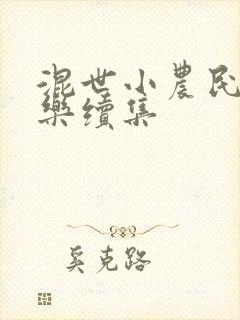 混世小農民
樂續集
奚克路